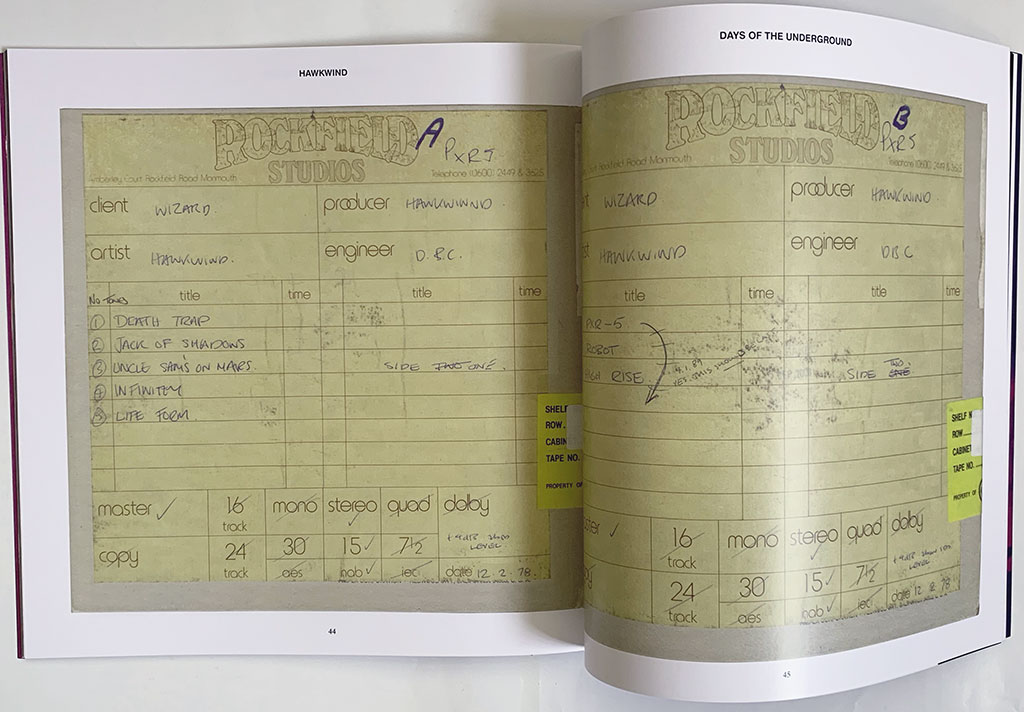 HAWKWIND
ROCKFIELD A
STUDIOS PXR5
Amberley Court Rockfield Road Monmouth Telephone (0600) 2449 & 3625
client WIZARD. producer HAWKWIND.
artist HAWKWIND. engineer D.B.C.
title time title time
1 DEATH TRAP
2 JACK OF SHADOWS
3 UNCLE SAM'S ON MARS. SIDE TWO ONE.
4 INFINITEY
5 LIFE FORM
master ✓ 16 track mono stereo quad dolby
copy 24 track 30 15 ✓ 7½
LEVEL
aes nab ✓ iec date 12.2.78.
SHELF
ROW.
CABIN
TAPE NO.
PROPERTY OF
44
DAYS OF THE UNDERGROUND
ROCKFIELD B
STUDIOS PXR5
Court Rockfield Road Monmouth Telephone (0600) 2449 & 3625
WIZARD producer HAWKWIND
HAWKWIND engineer DBC
title time title time
PXR-5
ROBOT
HIGH RISE SIDE TWO
✓ 16 track mono stereo quad dolby
24 track 30 15 ✓ 7½
LEVEL
aes nab ✓ iec date 12 2 78.
SHELF N
ROW
CABINET
TAPE NO.
PROPERTY OF
45